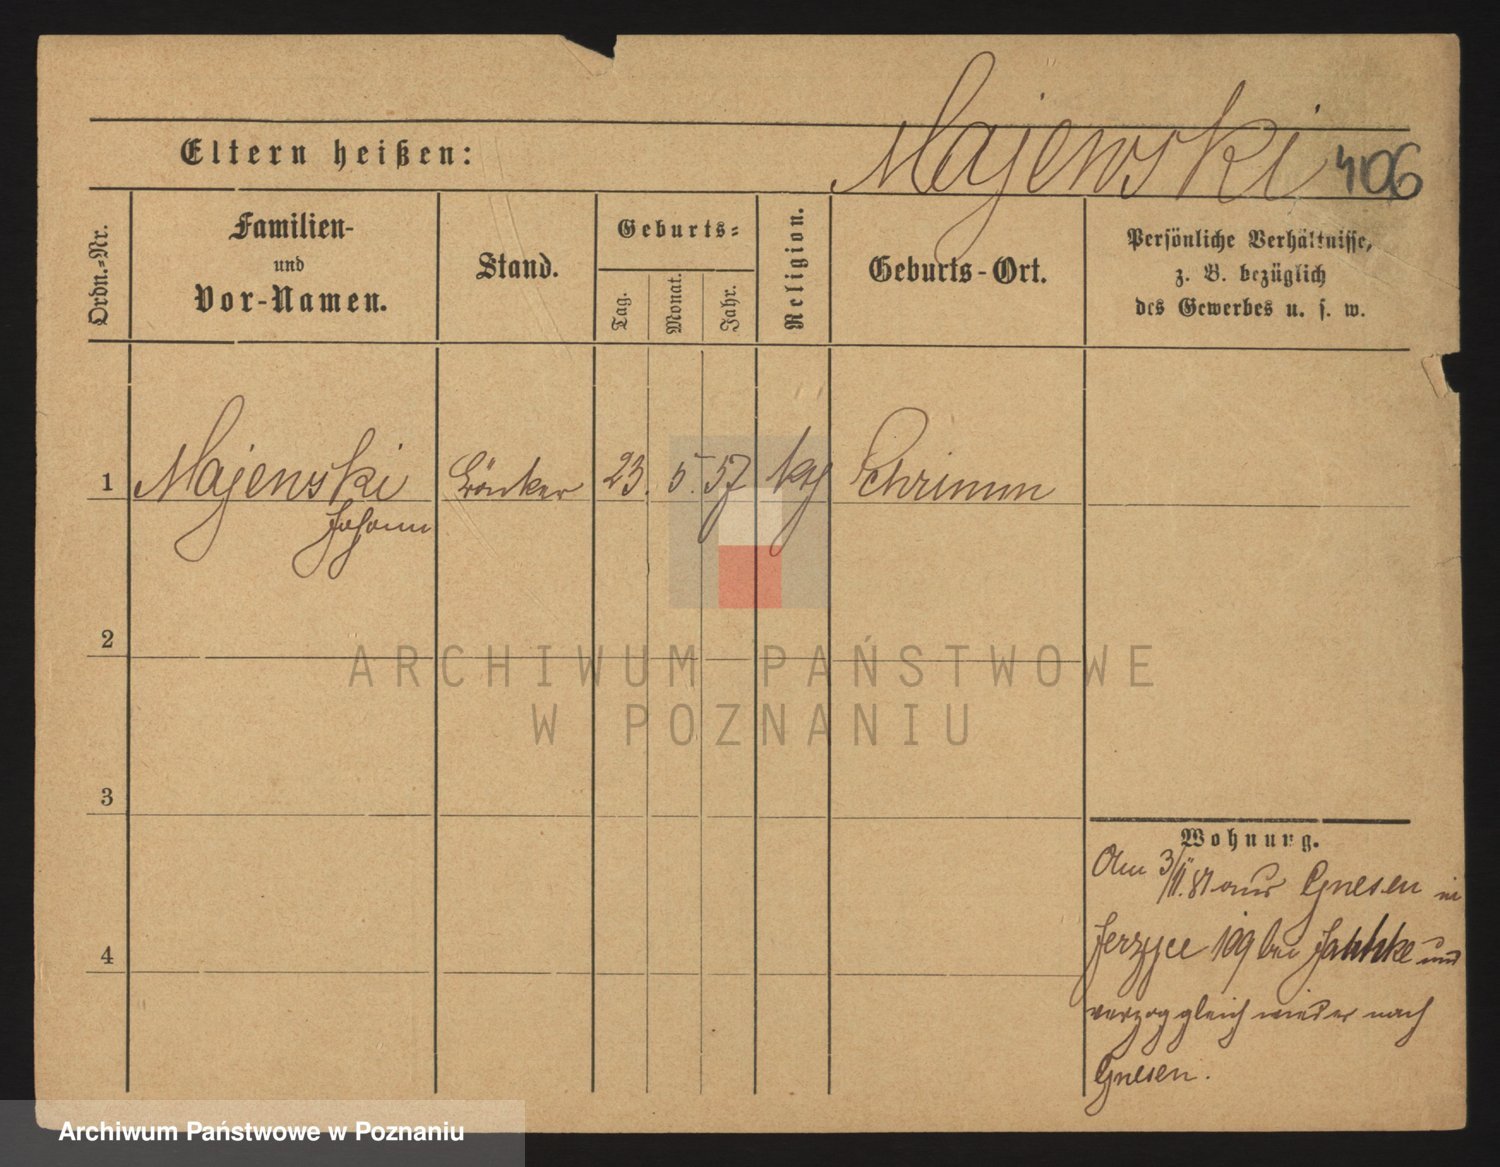 Majewski 406
Eltern heißen:
Ordn.-Nr.
Familien-
und
Vor-Namen.
Stand.
Geburts-
Tag.
Monat.
Jahr.
Religion.
Geburts-Ort.
Persönliche Verhältnisse,
z. B. bezüglich
des Gewerbes u. s. w.
1 Majewski 23. 5. 57 kth Schrimm
Johann
2
3
4
Wohnung.
Am 3/II. 81 aus Gnesen in
Jerzyce 109 bei Jahnke und
verzog gleich wieder nach
Gnesen.
ARCHIWUM PAŃSTWOWE
W POZNANIU
Archiwum Państwowe w Poznaniu